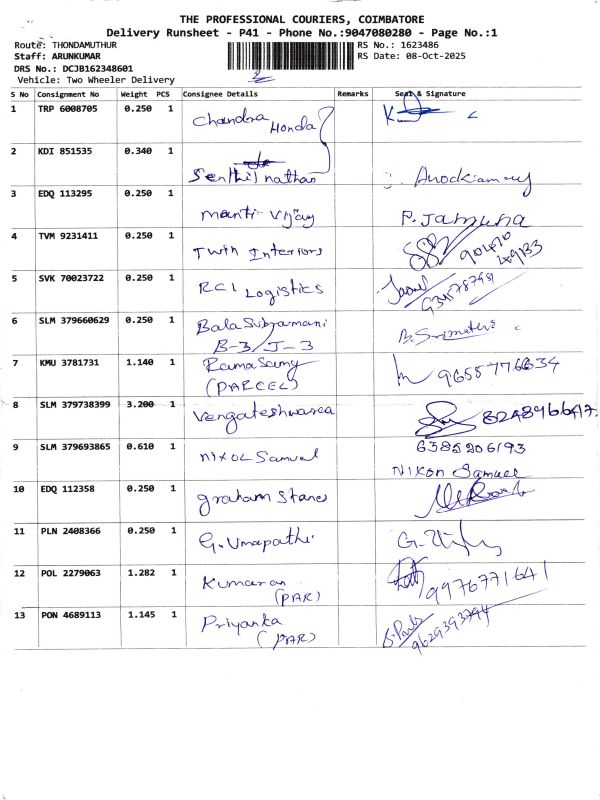 THE PROFESSIONAL COURIERS, COIMBATORE
Delivery Runsheet - P41 - Phone No.:9047080280 - Page No.:1
Route: THONDAMUTHUR
RS No.: 1623486
Staff: ARUNKUMAR
RS Date: 08-Oct-2025
DRS No.: DCJB162348601
Vehicle: Two Wheeler Delivery
S No Consignment No Weight PCS Consignee Details Remarks Seal & Signature
1 TRP 6008705 0.250 1 Chandra Honda
2 KDI 851535 0.340 1 Senthil nathan
3 EDQ 113295 0.250 1 Manti Vijay P. Jamuna
4 TVM 9231411 0.250 1 Twin Interiors 90470
49133
5 SVK 70023722 0.250 1 RCI Logistics
6 SLM 379660629 0.250 1 Bala Subramani
B-3/J-3
7 KMU 3781731 1.140 1 Rama Samy 9655776634
(PARCEL)
8 SLM 379738399 3.200 1 8248966417
9 SLM 379693865 0.610 1 Nixol Samuel 6385206193
Nixon Samuel
10 EDQ 112358 0.250 1 graham Stanes
11 PLN 2408366 0.250 1 G. Umapathi
12 POL 2279063 1.282 1 Kumaran 9976771641
(PAR)
13 PON 4689113 1.145 1 Priyanka 9629393794
(PAR)